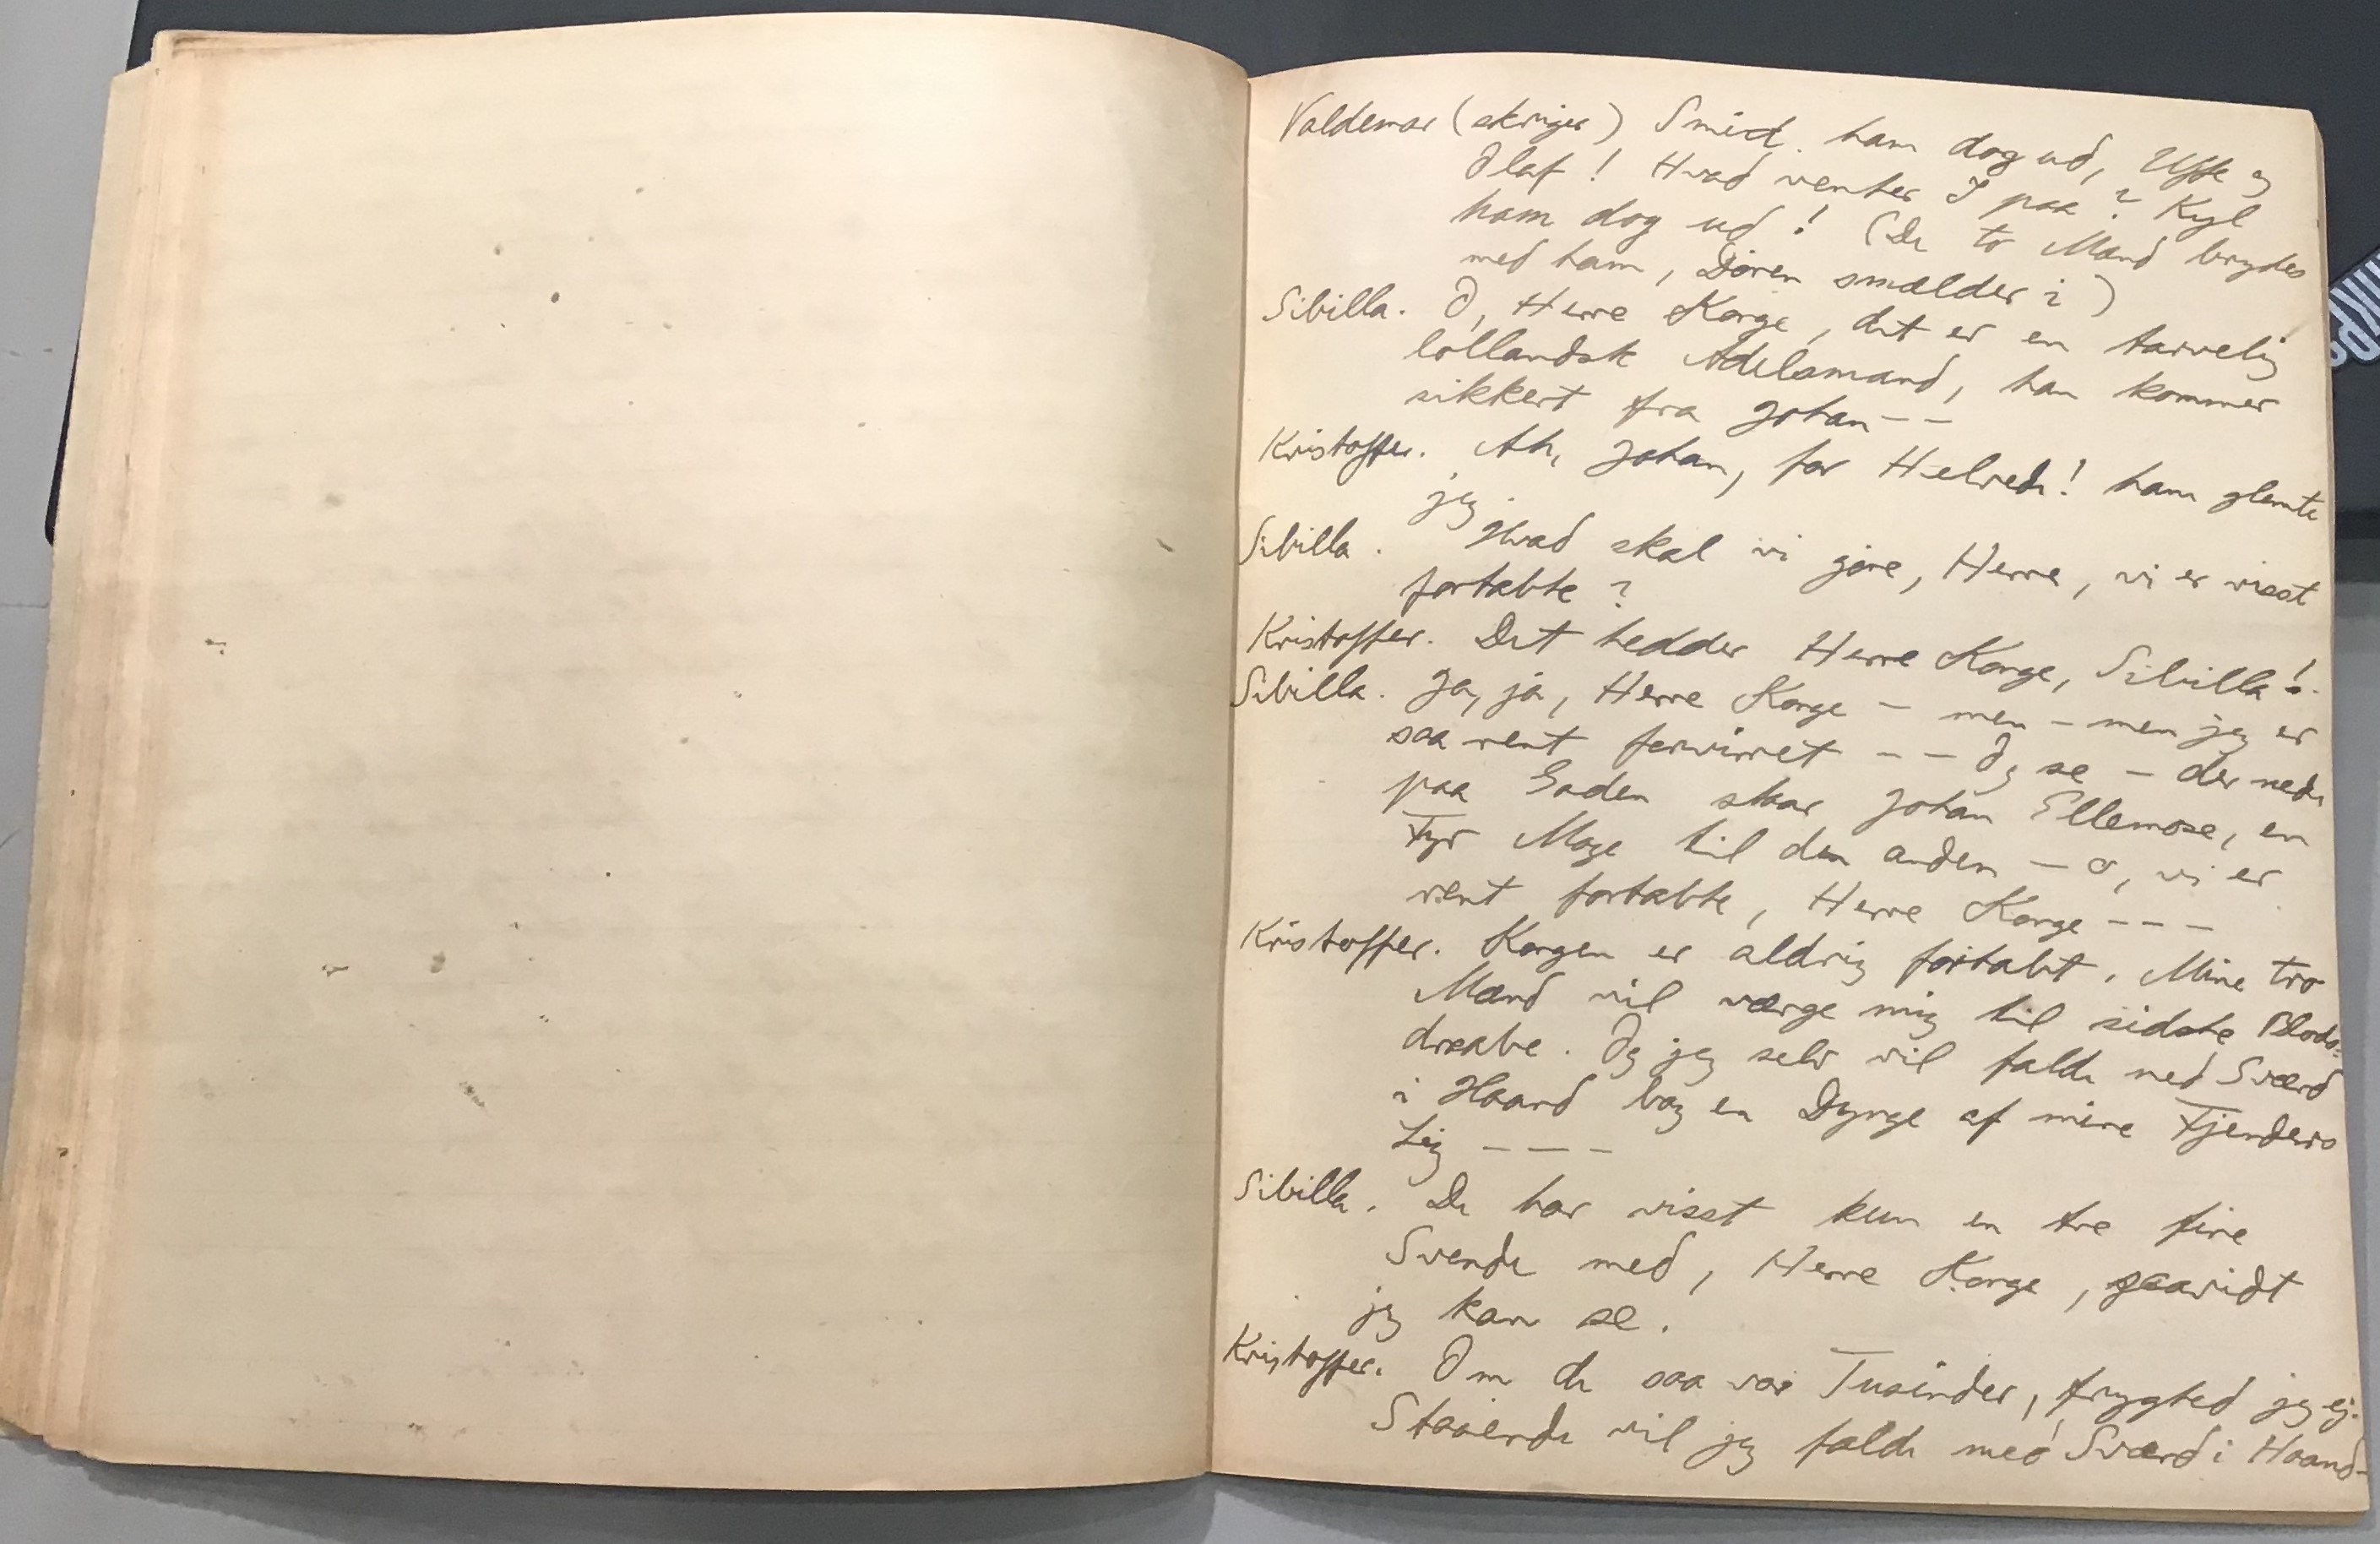 Valdemar (skriger) Smid ham dog ud, Uffe og
Olaf! Hvad venter I paa? Kyl
ham dog ud! (De to Mænd brydes
med ham, Døren smælder i)
Sibilla. O, Herre Konge, det er en tarvelig
lollandsk Adelsmand, han kommer
sikkert fra Johan --
Kristoffer. Ah, Johan, for Helvede! ham glemte
jeg.
Sibilla. Hvad skal vi gøre, Herre, vi er visst
fortabte?
Kristoffer. Det hedder Herre Konge, Sibilla!
Sibilla. Ja, ja, Herre Konge - men - men jeg er
saa rent forvirret -- Og se - der nede
paa Gaden staar Johan Ellemose, en
Fyr Mage til den anden - o, vi er
rent fortabte, Herre Konge ---
Kristoffer. Kongen er aldrig fortabt. Mine tro
Mænd vil værge mig til sidste Blods-
draabe. Og jeg selv vil falde med Sværd
i Haand bag en Dynge af mine Fjenders
Lig ----
Sibilla. De har visst kun en tre fire
Svende med, Herre Konge, saavidt
jeg kan se.
Kristoffer. Om de saa var Tusinder, frygted jeg ej.
Staaende vil jeg falde med Sværd i Haand-